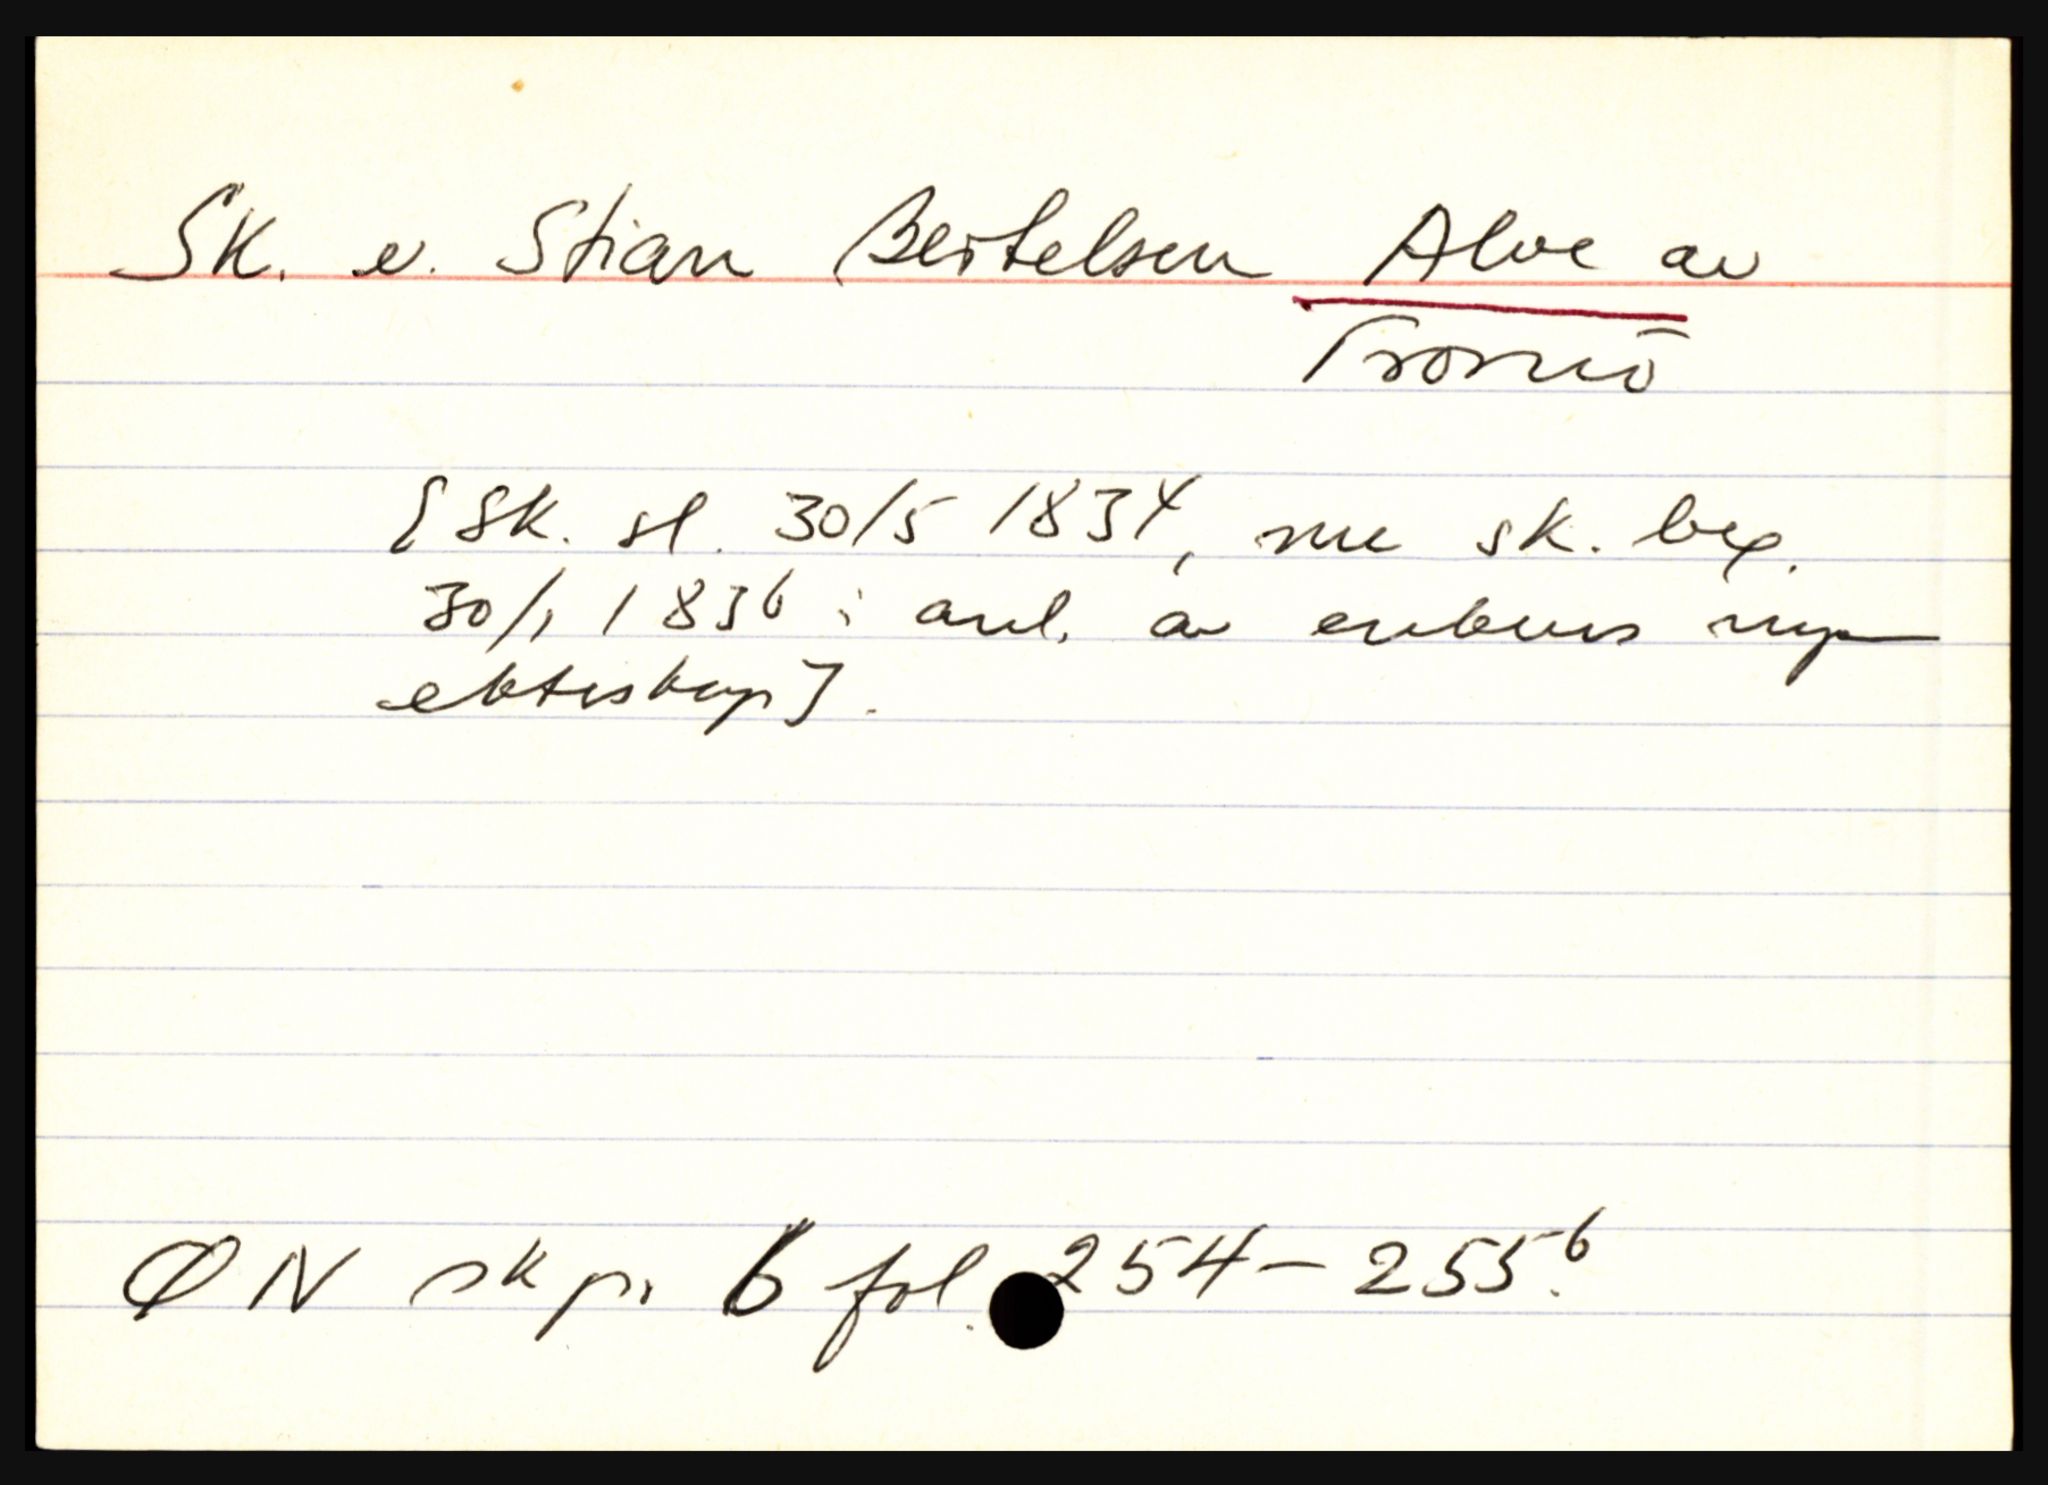 Sk. e. Stian Bertelsen Alve av
Tromö
[Sk. sl. 30/5 1834, nu sk. beg.
30/1 1836 i anl. av enkens nye
ekteskap].
ØN skp. 6 fol. 254-255b.